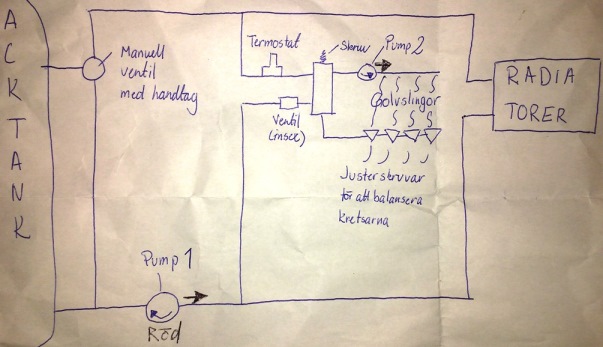 A
C
K
T
A
N
K
Manuell
ventil
med handtag
Termostat
Skruv
Pump 2
Golvslingor
Ventil
(insex)
RADIA
TORER
Justerskruvar
för att balansera
kretsarna
Pump 1
Röd